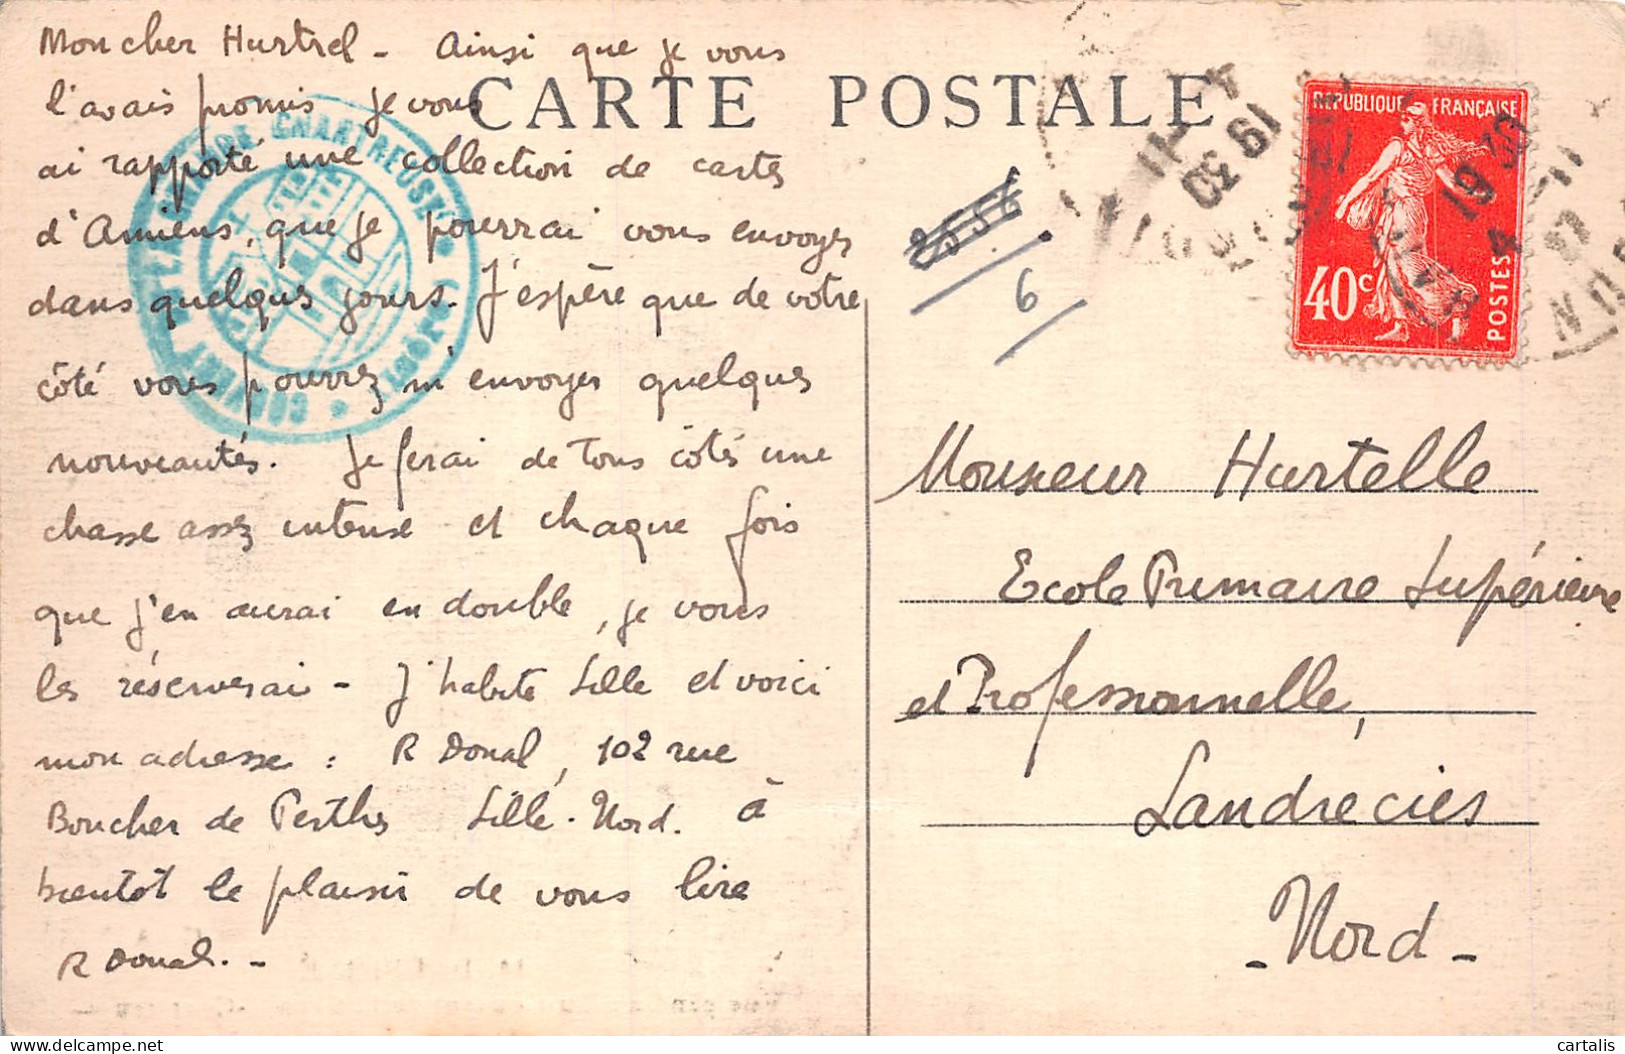 CARTE POSTALE
Mon cher Hurtrel - Ainsi que je vous
l'avais promis je vous
ai rapporté une collection de cartes
d'Amiens, que je pourrai vous envoyer
dans quelques jours. J'espère que de votre
côté vous pourrez m'envoyer quelques
nouveautés. Je ferai de tous côtés une
chasse assez intense et chaque fois
que j'en aurai en double, je vous
les réserverai - J'habite Lille et voici
mon adresse : R Donal, 102 rue
Boucher de Perthes Lille. Nord. à
bientôt le plaisir de vous lire
R Donal. -
COUVENT DE LA GRANDE CHARTREUSE
(Isère)
8556
6
REPUBLIQUE FRANÇAISE
40c
POSTES
19 30
NORD
Monsieur Hurtelle
Ecole Primaire Supérieure
et Professionnelle,
Landrecies
- Nord -
cartalis
delcampe.net